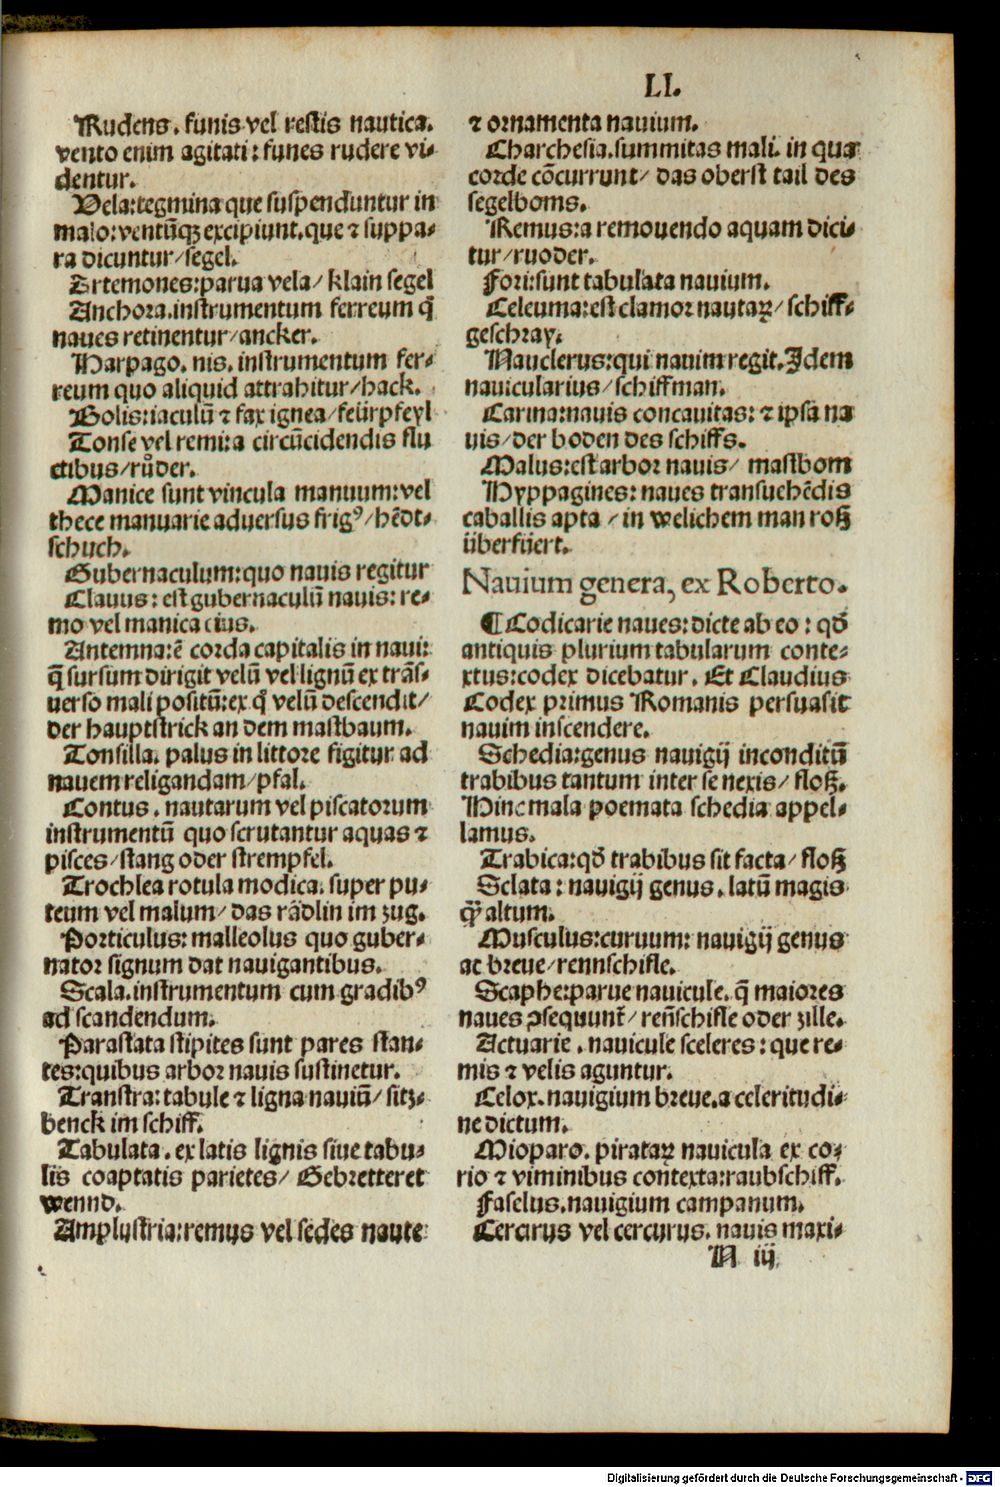 LI.
Rudens. funis vel restis nautica.
vento enim agitati: funes rudere vi⸗
dentur.
Vela: tegmina que suspenduntur in
malo: ventūqꝫ excipiunt. que ⁊ suppa⸗
ra dicuntur/ segel.
Artemones: parua vela/ klain segel
Anchora. instrumentum ferreum q̄
naues retinentur/ ancker.
Harpago. nis. instrumentum fer⸗
reum quo aliquid attrahitur/ hack.
Bolis: iaculū ⁊ fax ignea/ feürpfeyl
Tonse vel remi: a circūcidendis flu
ctibus/ růder.
Manice sunt vincula manuum: vel
thece manuarie aduersus frigꝰ/ hēdt⸗
schuch.
Gubernaculum: quo nauis regitur
Clauus: est gubernaculū nauis: re⸗
mo vel manica cius.
Antemna: ē corda capitalis in naui:
q̄ sursum dirigit velū vel lignū ex trās⸗
uerso mali positū: ex q̊ velū descendit/
der hauptstrick an dem mastbaum.
Tonsilla. palus in littore figitur ad
nauem religandam/ pfal.
Contus. nautarum vel piscatorum
instrumentū quo scrutantur aquas ⁊
pisces/ stang oder strempfel.
Trochlea rotula modica. super pu⸗
teum vel malum/ das rädlin im zug.
Porticulus: malleolus quo guber⸗
nator signum dat nauigantibus.
Scala. instrumentum cum gradibꝰ
ad scandendum.
Parastata stipites sunt pares stan⸗
tes: quibus arbor nauis sustinetur.
Transtra: tabule ⁊ ligna nauiū/ sitz⸗
benck im schiff.
Tabulata. ex latis lignis siue tabu⸗
lis coaptatis parietes/ Gebretteret
wennd.
Amplustria: remus vel sedes naute
⁊ ornamenta nauium.
Charchesia. summitas mali. in qua
corde cōcurrunt/ das oberst tail des
segelboms.
Remus: a remouendo aquam dici⸗
tur/ ruoder.
Fori: sunt tabulata nauium.
Celeuma: est clamor nautaꝝ/ schiff⸗
geschray.
Nauclerus: qui nauim regit. Idem
nauicularius/ schiffman.
Carina: nauis concauitas: ⁊ ipsa na
uis/ der boden des schiffs.
Malus: est arbor nauis/ mastbom
Hyppagines: naues transuehēdis
caballis apta/ in welichem man roß
überfüert.
Nauium genera, ex Roberto.
¶ Codicarie naues: dicte ab eo: qđ
antiquis plurium tabularum conte⸗
xtus: codex dicebatur. Et Claudius
Codex primus Romanis persuasit
nauim inscendere.
Schedia: genus nauigij inconditū
trabibus tantum inter se nexis/ floß.
Hinc mala poemata schedia appel⸗
lamus.
Trabica: qđ trabibus sit facta/ floß
Sclata: nauigij genus. latū magis
q̄ altum.
Musculus: curuum: nauigij genus
ac breue/ rennschifle.
Scaphe: parue nauicule. q̄ maiores
naues ꝓsequunt̄/ reñschifle oder zille.
Actuarie. nauicule sceleres: que re⸗
mis ⁊ velis aguntur.
Celox. nauigium breue. a celeritudi⸗
ne dictum.
Mioparo. pirataꝝ nauicula ex co⸗
rio ⁊ viminibus contexta: raubschiff.
Faselus. nauigium campanum.
Cercirus vel cercurus. nauis maxi⸗
N iij
Digitalisierung gefördert durch die Deutsche Forschungsgemeinschaft - DFG